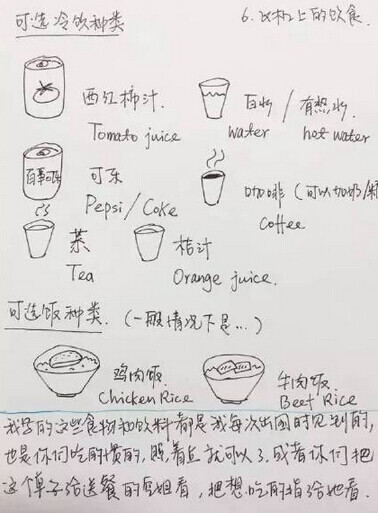 可选冷饮种类
6.飞机上的饮食.
西红柿汁.
Tomato juice
白水 / 有热水.
water hot water
百事可乐
可乐
Pepsi/Coke
咖啡 (可以加奶/
Coffee
茶
Tea
桔汁
Orange juice.
可选饭种类. (一般情况下是...)
鸡肉饭
Chicken Rice
牛肉饭
Beef Rice
我写的这些食物和饮料都是我每次出国时见到的,
也是你们吃的惯的,照着点就可以了.或者你们把
这个单子给送餐的空姐看,把想吃的指给她看.